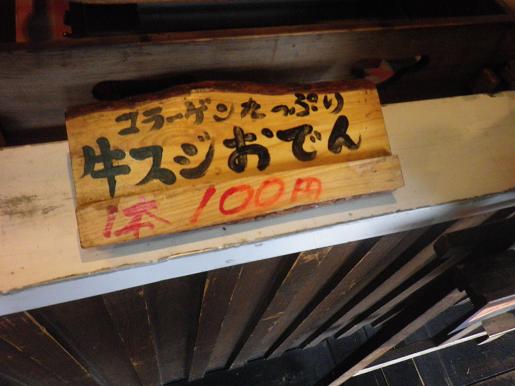 コラーゲンたっぷり
牛スジおでん
1本 100円